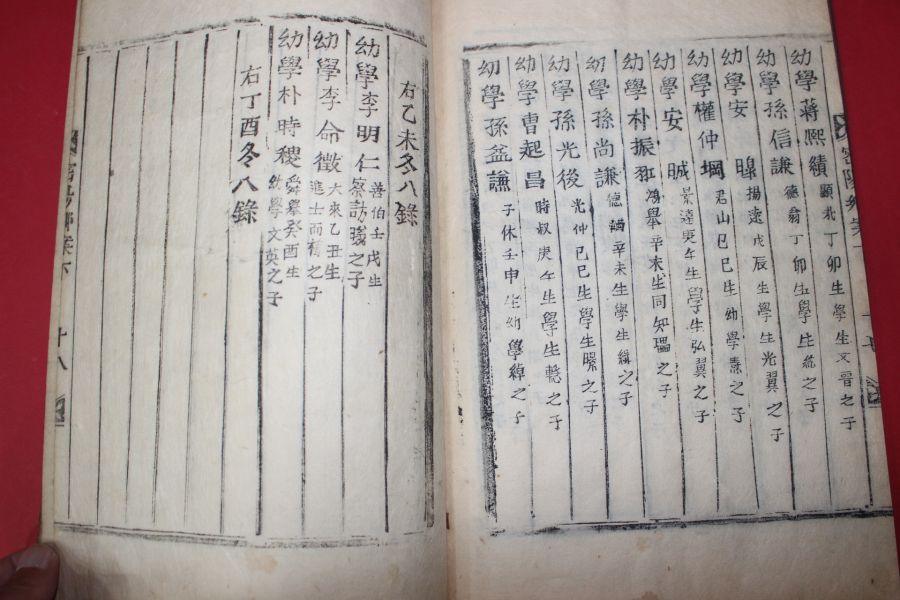 幼學蔣熙績 顯兆丁卯生學生文晉之子
幼學孫信謙 德翁丁卯生學生統之子
幼學安 揚遠戊辰生學生光翼之子
幼學權仲堈 君山己巳生幼學燾之子
幼學安 景遠庚午生學生弘翼之子
幼學朴振羽 鴻擧辛未生同知瑥之子
幼學孫尚謙 德 辛未生學生緝之子
幼學孫光後 光仲己巳生學生㬚之子
幼學曹起昌 時叔庚午生學生之子
幼學孫益謙 子休壬申生幼學綽之子
右乙未冬八錄
幼學李明仁 善伯壬戌生
察訪之子
幼學李命徵 大來乙丑生
進士而楨之子
幼學朴時稷 舜擧癸酉生
幼學文英之子
右丁酉冬八錄
密陽鄕案下
十八